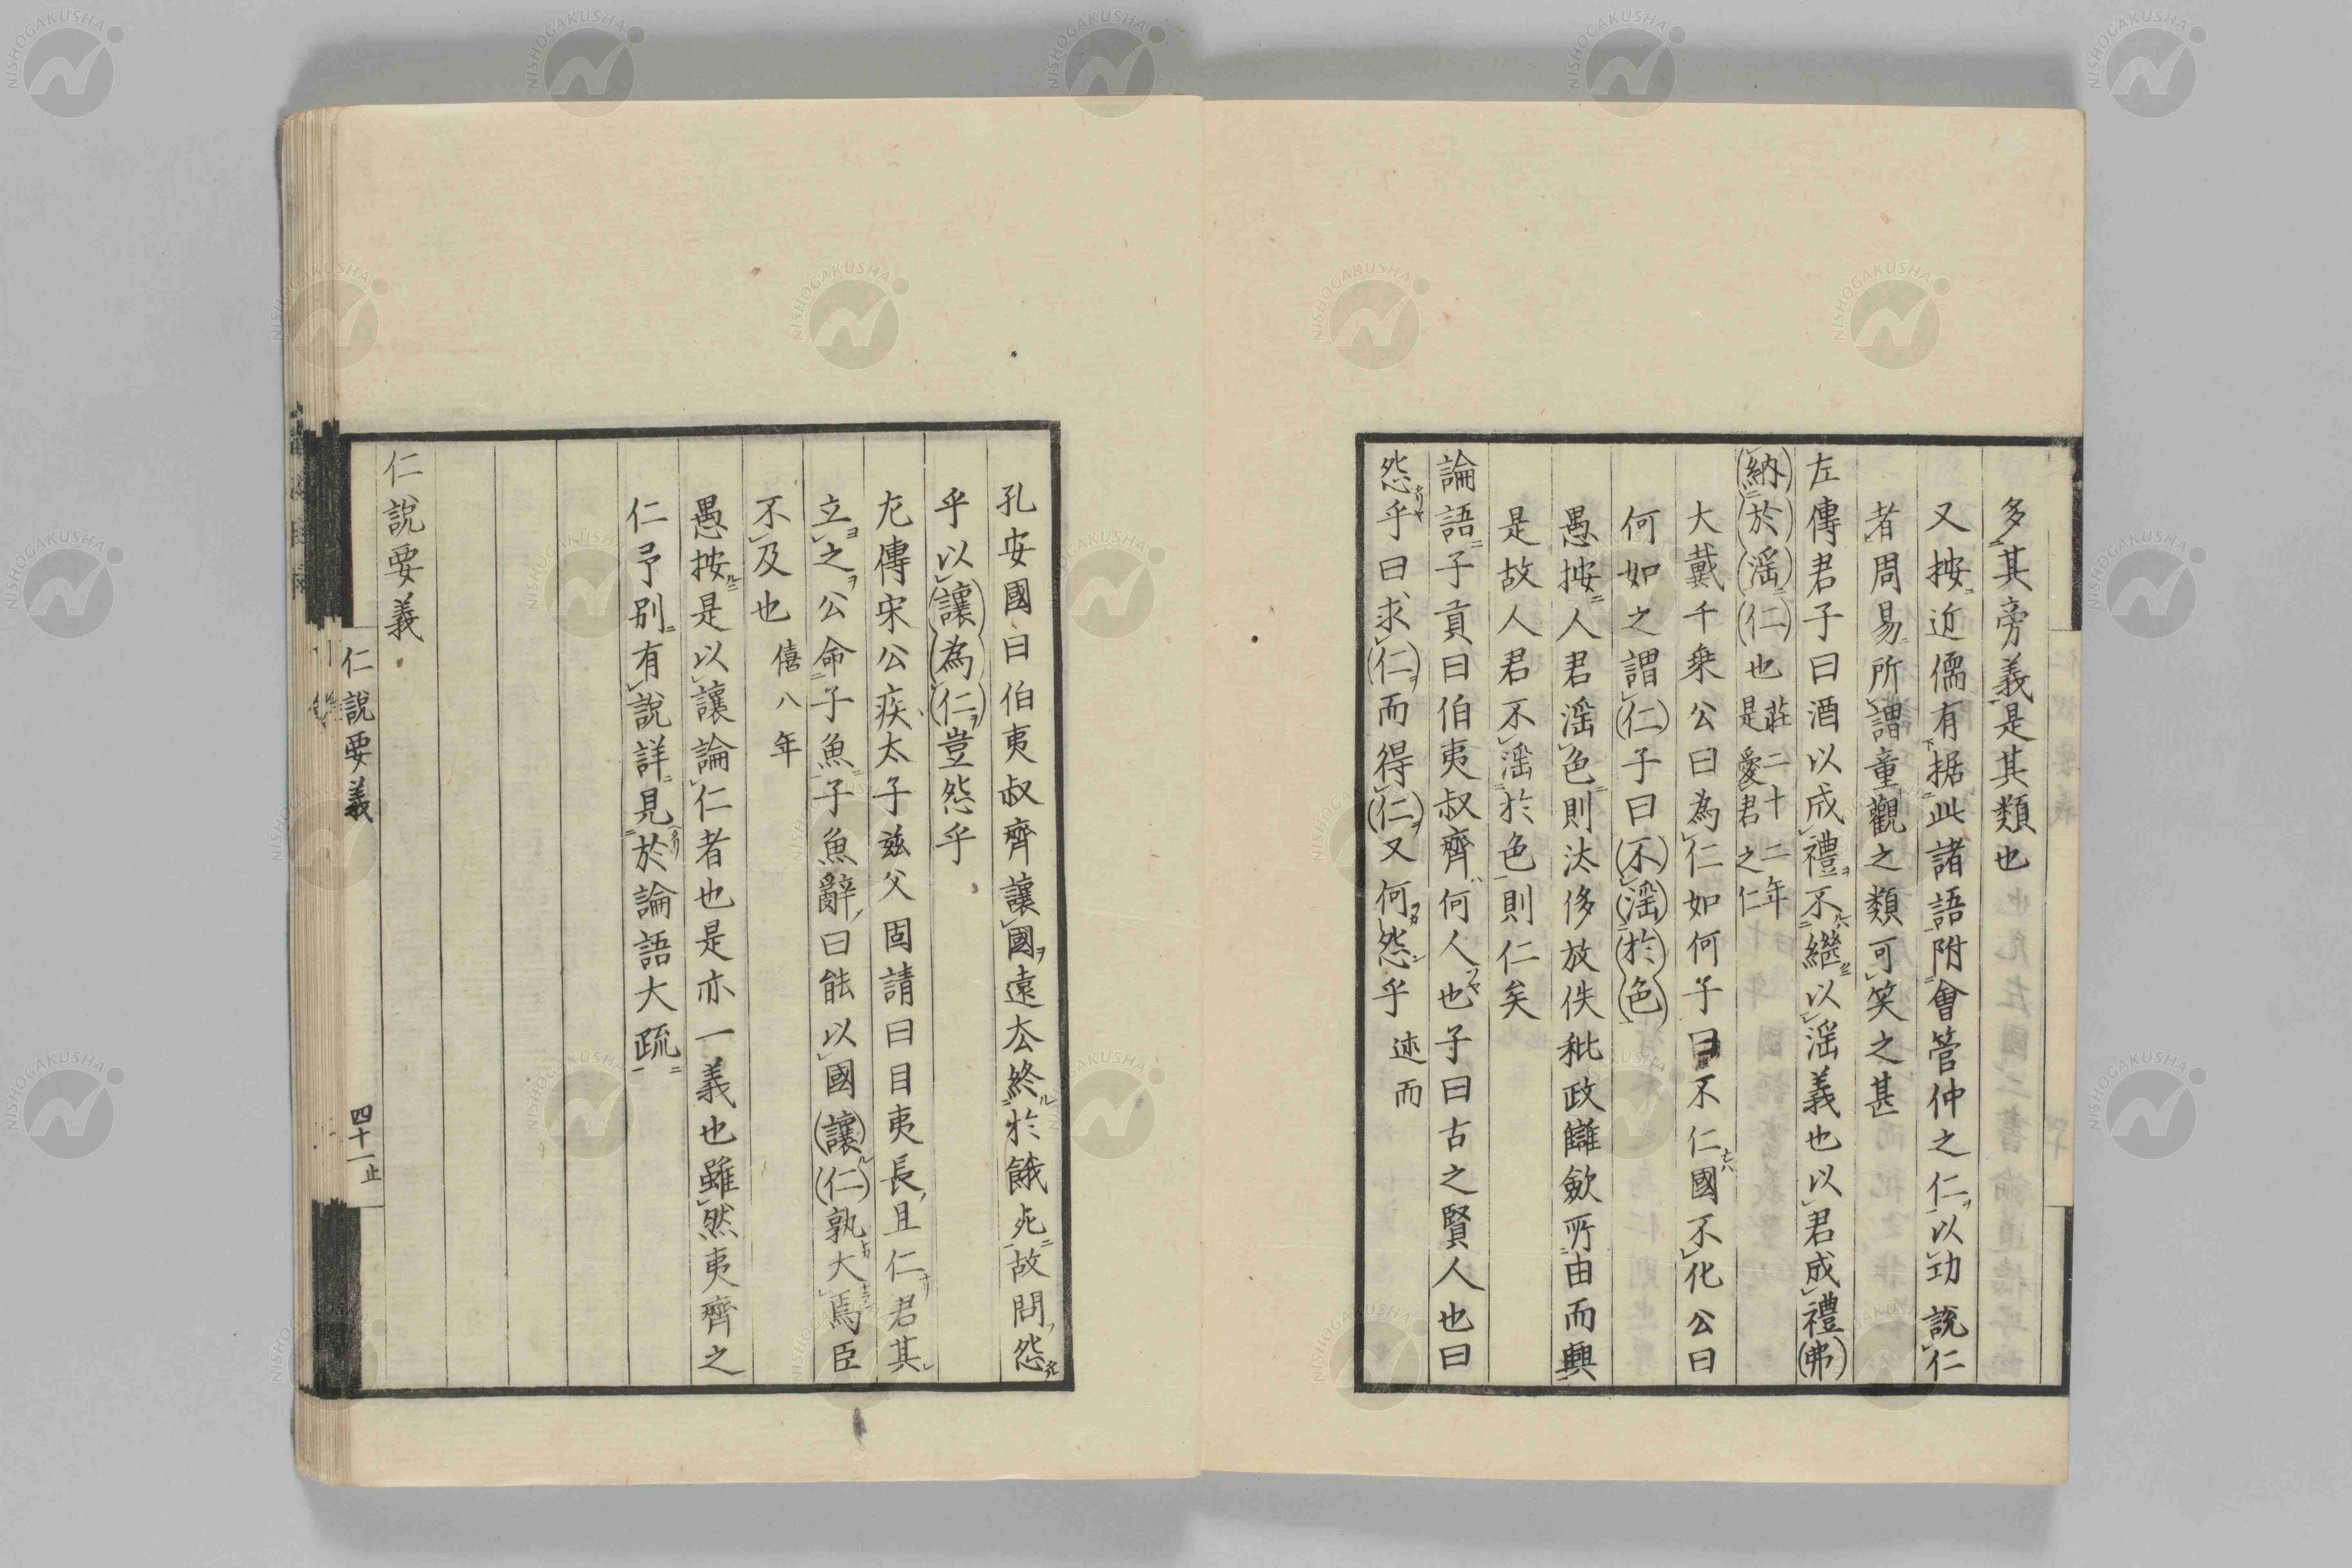 多其旁義是其類也
又按近儒有据此諸語附會管仲之仁以功說仁
者周易所謂童觀之類可笑之甚
左傳君子曰酒以成禮不繼以滛義也以君成禮(弗)
(納)(於)(滛)(仁)也莊二十二年是愛君之仁
大戴千乗公曰為仁如何子曰不仁國不化公曰
何如之謂(仁)子曰(不)(滛)(於)(色)
愚按人君滛色則汰侈放佚秕政讎斂所由而興
是故人君不滛於色則仁矣
論語子貢曰伯夷叔齊何人也子曰古之賢人也曰
怨乎曰求(仁)而得(仁)又何怨乎 述而
孔安國曰伯夷叔齊讓國遠去終於餓死故問怨
乎以(讓)(為)(仁)豈怨乎
左傳宋公疾太子兹父固請曰目夷長且仁君其
立之公命子魚子魚辭曰能以國(讓)(仁)孰大焉臣
不及也 僖八年
愚按是以讓論仁者也是亦一義也雖然夷齊之
仁予別有說詳見於論語大疏
仁說要義
仁說要義
四十一止
NISHOGAKUSHA